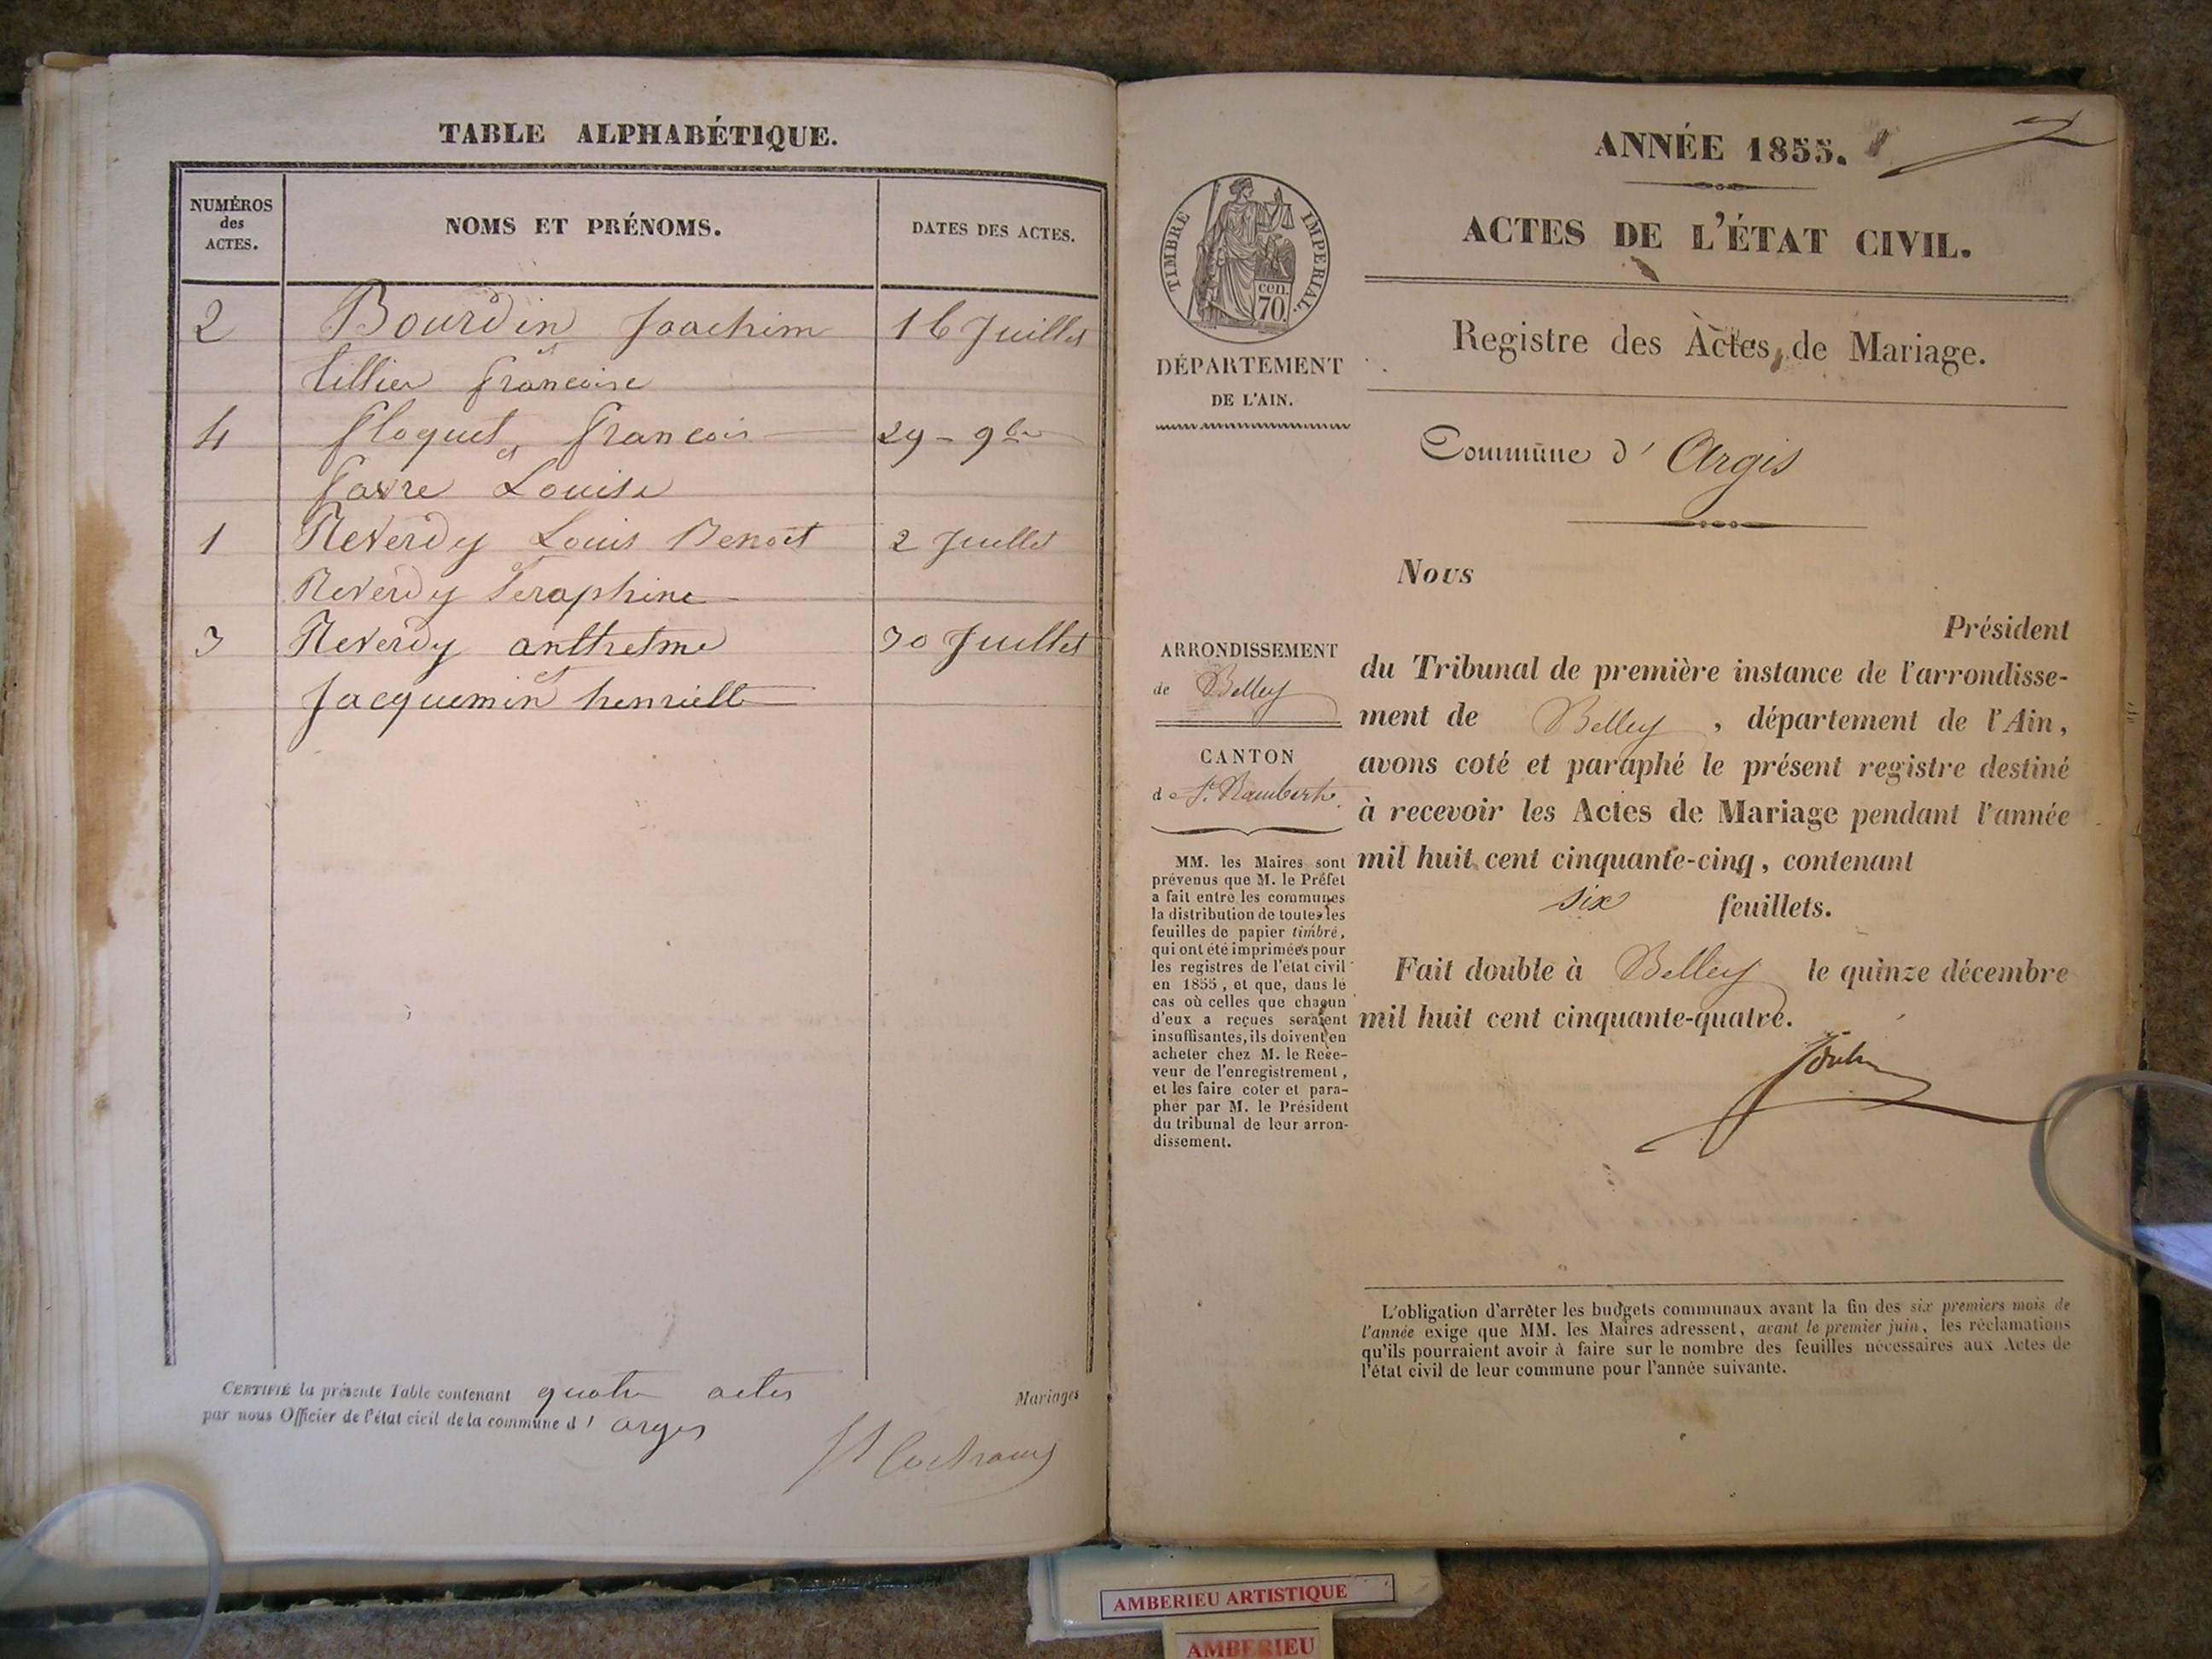 TABLE ALPHABÉTIQUE.
NUMÉROS
des
ACTES.
NOMS ET PRÉNOMS.
DATES DES ACTES.
2 Bourdin Joachim 16 Juillet
et
tillier francoise
4 floquet francois 29 - 9bre
et
favre Louise
1 Reverdy Louis Benoit 2 Juillet
et
Reverdy Seraphine
3 Reverdy anthelme 30 Juillet
et
Jacquemin henriette
CERTIFIÉ la présente Table contenant quatre actes
Mariages
par nous Officier de l'état civil de la commune d' arges
ANNÉE 1855.
ACTES DE L'ÉTAT CIVIL.
Registre des Actes de Mariage.
Commune d' Argis
TIMBRE IMPERIAL.
cen.
70.
DÉPARTEMENT
DE L'AIN.
ARRONDISSEMENT
de Belley
CANTON
de St. Rambert
MM. les Maires sont
prévenus que M. le Préfet
a fait entre les communes
la distribution de toutes les
feuilles de papier timbré,
qui ont été imprimées pour
les registres de l'état civil
en 1855, et que, dans le
cas où celles que chacun
d'eux a reçues seraient
insuffisantes, ils doivent en
acheter chez M. le Rece-
veur de l'enregistrement,
et les faire coter et para-
pher par M. le Président
du tribunal de leur arron-
dissement.
Nous
Président
du Tribunal de première instance de l'arrondisse-
ment de Belley, département de l'Ain,
avons coté et paraphé le présent registre destiné
à recevoir les Actes de Mariage pendant l'année
mil huit cent cinquante-cinq, contenant
six feuillets.
Fait double à Belley le quinze décembre
mil huit cent cinquante-quatre.
L'obligation d'arrêter les budgets communaux avant la fin des six premiers mois de
l'année exige que MM. les Maires adressent, avant le premier juin, les réclamations
qu'ils pourraient avoir à faire sur le nombre des feuilles nécessaires aux Actes de
l'état civil de leur commune pour l'année suivante.
AMBERIEU ARTISTIQUE
AMBERIEU